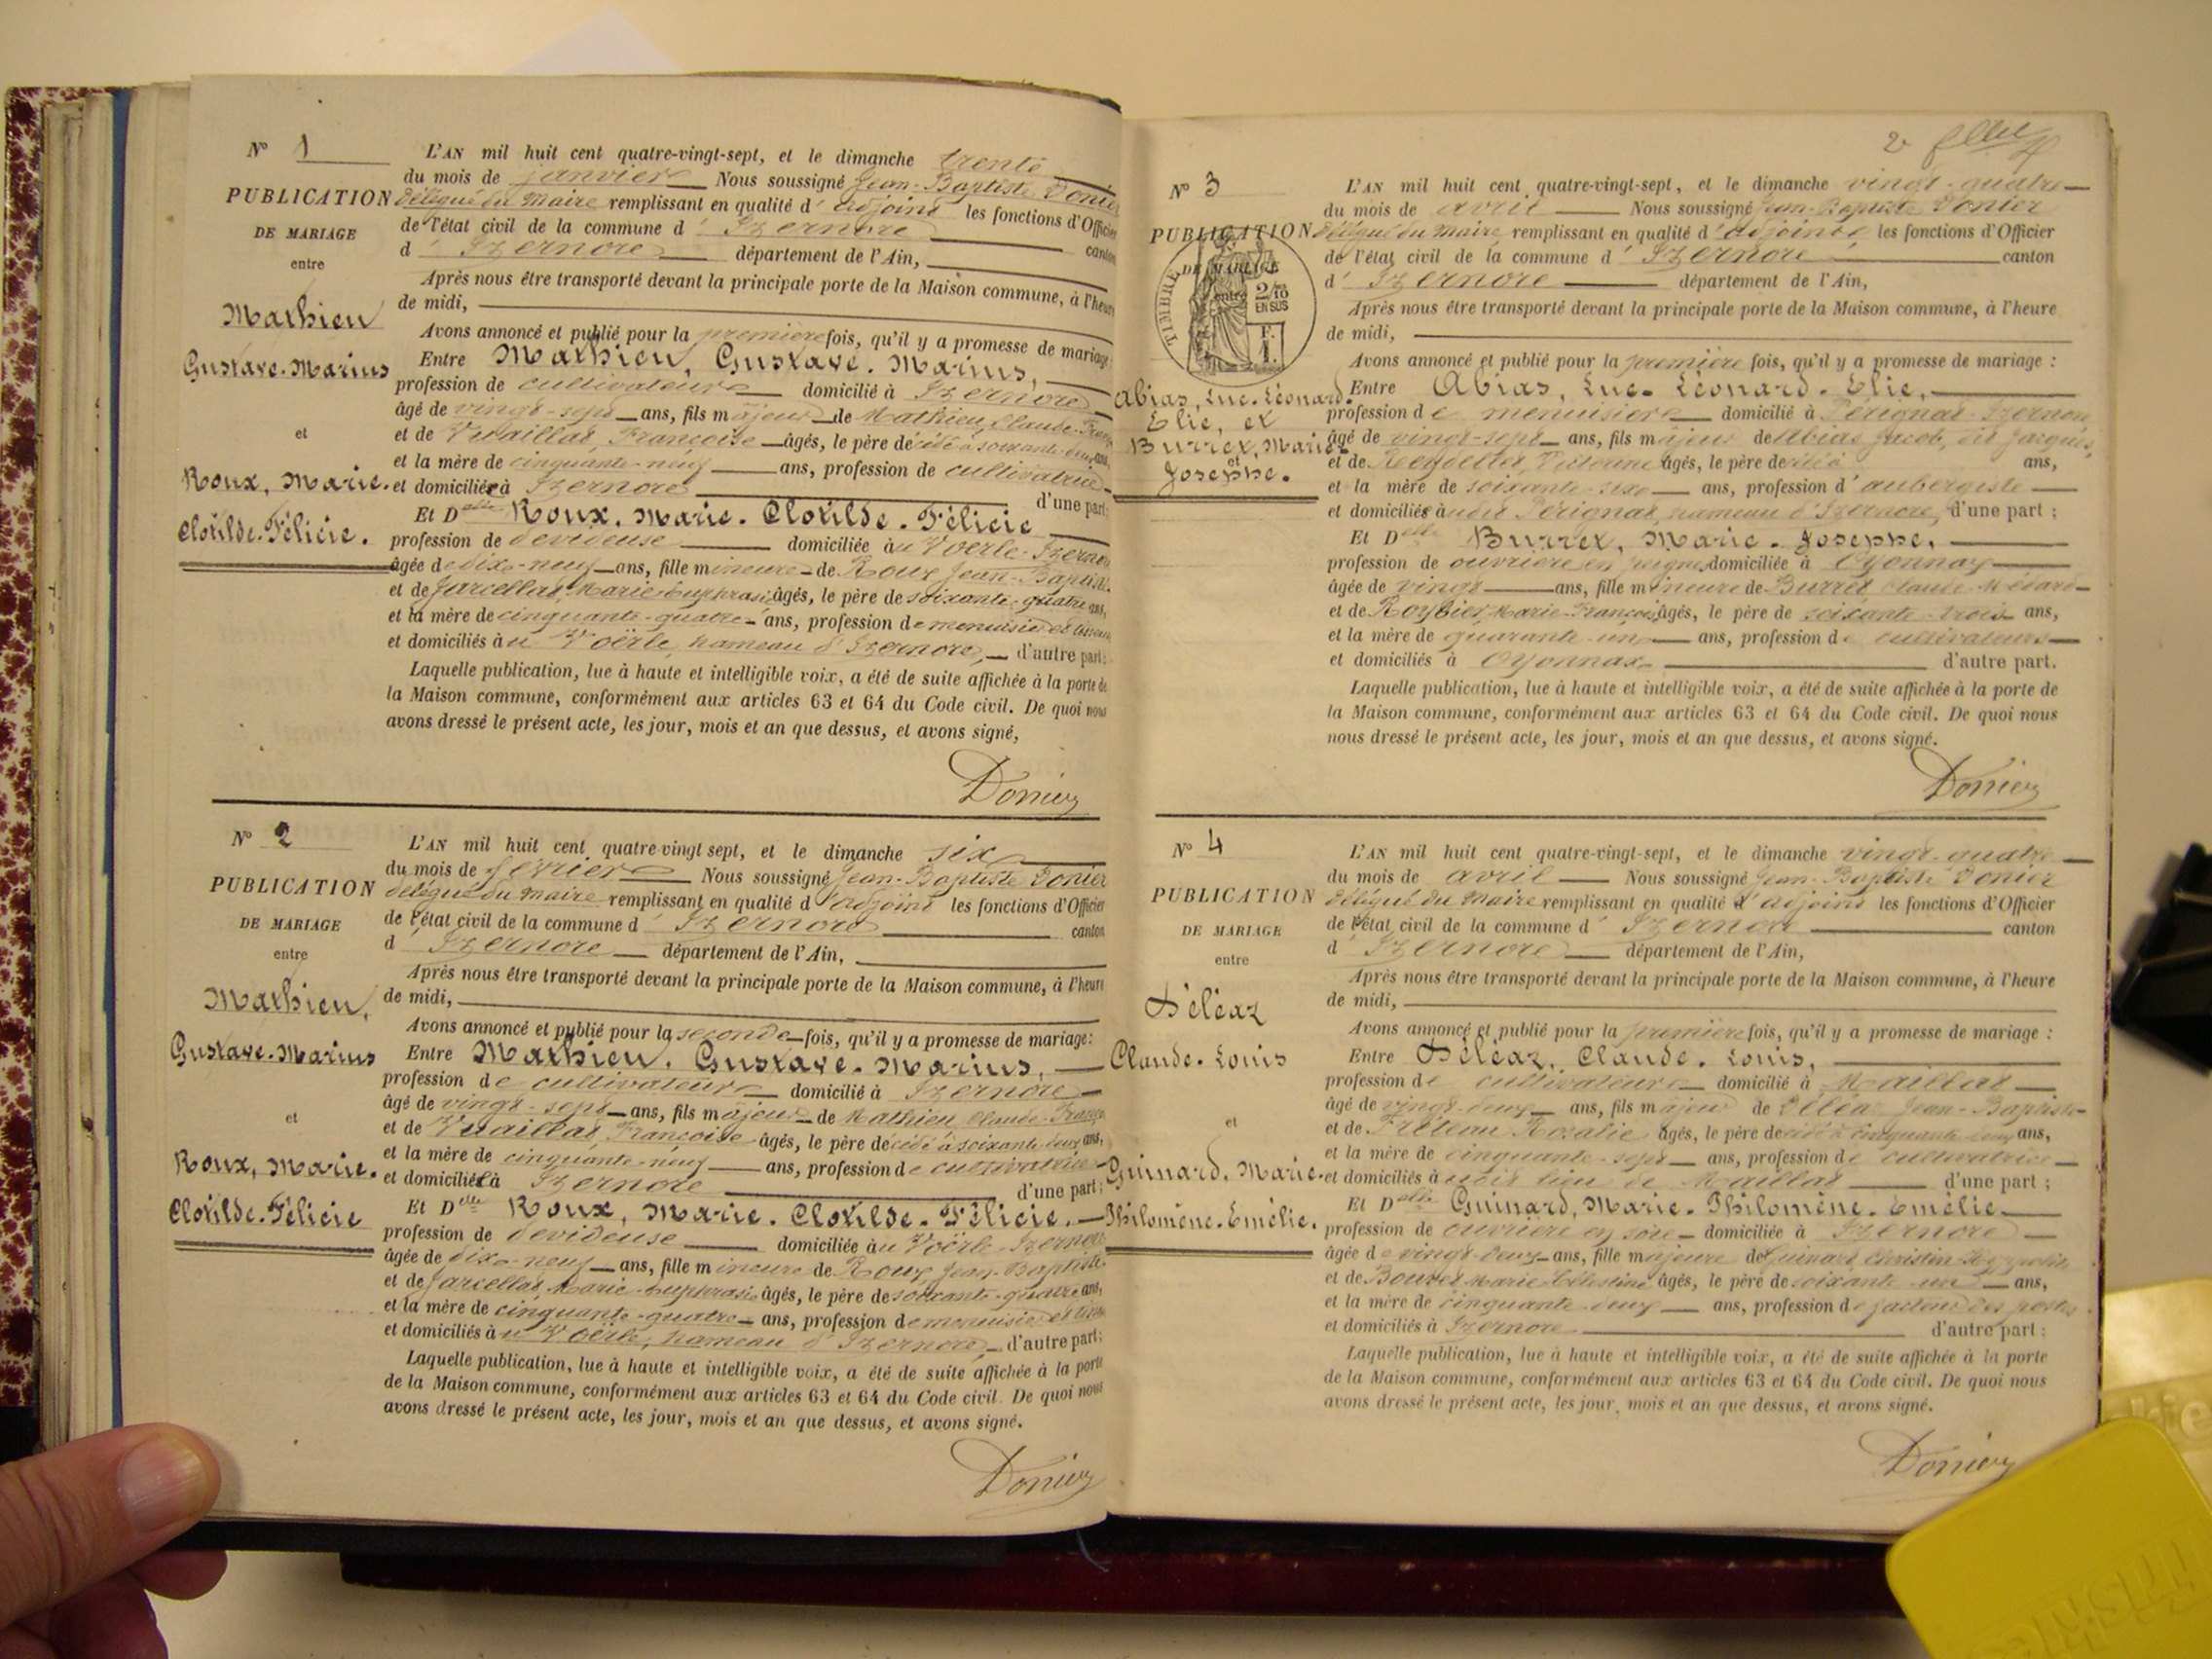 N° 1
PUBLICATION
DE MARIAGE
entre
Mathieu
Gustave-Marius
et
Roux, Marie-
Clotilde-Félicie.
L'AN mil huit cent quatre-vingt-sept, et le dimanche trente
du mois de janvier Nous soussigné Jean-Baptiste Donier
délégué du Maire remplissant en qualité d'adjoint les fonctions d'Officier
de l'état civil de la commune d'Izernore canton
d'Izernore département de l'Ain,
Après nous être transporté devant la principale porte de la Maison commune, à l'heure
de midi,
Avons annoncé et publié pour la première fois, qu'il y a promesse de mariage:
Entre Mathieu, Gustave-Marius,
profession de cultivateur domicilié à Izernore
âgé de vingt-sept ans, fils majeur de Mathieu, Claude-
et de Vuaillat Françoise âgés, le père décédé à soixante-deux ans,
et la mère de cinquante-neuf ans, profession de cultivatrice
et domiciliée à Izernore d'une part;
Et Delle Roux, Marie-Clotilde-Félicie
profession de dévideuse domiciliée au Voërle-Izernore
âgée de dix-neuf ans, fille mineure de Roux Jean-Baptiste
et de Jarcellat Marie-Euphrasie âgés, le père de soixante-quatre ans,
et la mère de cinquante-quatre ans, profession de menuisier et
et domiciliés au Voërle, hameau d'Izernore, d'autre part:
Laquelle publication, lue à haute et intelligible voix, a été de suite affichée à la porte de
la Maison commune, conformément aux articles 63 et 64 du Code civil. De quoi nous
avons dressé le présent acte, les jour, mois et an que dessus, et avons signé,
Donier
N° 2
PUBLICATION
DE MARIAGE
entre
Mathieu,
Gustave-Marius
et
Roux, Marie-
Clotilde-Félicie
L'AN mil huit cent quatre vingt sept, et le dimanche six
du mois de février Nous soussigné Jean-Baptiste Donier
délégué du Maire remplissant en qualité d'adjoint les fonctions d'Officier
de l'état civil de la commune d'Izernore canton
d'Izernore département de l'Ain,
Après nous être transporté devant la principale porte de la Maison commune, à l'heure
de midi,
Avons annoncé et publié pour la seconde fois, qu'il y a promesse de mariage:
Entre Mathieu, Gustave-Marius,
profession de cultivateur domicilié à Izernore
âgé de vingt-sept ans, fils majeur de Mathieu Claude-
et de Vuaillat Françoise âgés, le père décédé à soixante-deux ans,
et la mère de cinquante-neuf ans, profession de cultivatrice
et domiciliée à Izernore d'une part;
Et Delle Roux, Marie-Clotilde-Félicie.
profession de dévideuse domiciliée au Voërle-Izernore
âgée de dix-neuf ans, fille mineure de Roux Jean-Baptiste
et de Jarcellat Marie-Euphrasie âgés, le père de soixante-quatre ans,
et la mère de cinquante-quatre ans, profession de menuisier et
et domiciliés au Voërle, hameau d'Izernore, d'autre part:
Laquelle publication, lue à haute et intelligible voix, a été de suite affichée à la porte
de la Maison commune, conformément aux articles 63 et 64 du Code civil. De quoi nous
avons dressé le présent acte, les jour, mois et an que dessus, et avons signé.
Donier
2
N° 3
PUBLICATION
DE MARIAGE
entre
TIMBRE
2/10
EN SUS
F.
1.
Abias, Luc-Léonard-
Elie, et
Burret, Marie-
et
Josephe.
L'AN mil huit cent quatre-vingt-sept, et le dimanche vingt-quatre
du mois de avril Nous soussigné Jean-Baptiste Donier
délégué du Maire remplissant en qualité d'adjoint les fonctions d'Officier
de l'état civil de la commune d'Izernore canton
d'Izernore département de l'Ain,
Après nous être transporté devant la principale porte de la Maison commune, à l'heure
de midi,
Avons annoncé et publié pour la première fois, qu'il y a promesse de mariage :
Entre Abias, Luc-Léonard-Elie,
profession de menuisier domicilié à Pérignat-Izernore
âgé de vingt-sept ans, fils majeur de Abias Jacob, dit Jacques,
et de âgés, le père décédé ans,
et la mère de ans, profession d'aubergiste
et domiciliés audit Pérignat, hameau d'Izernore, d'une part ;
Et Delle Burret, Marie-Josephe,
profession de ouvrière en peignes domiciliée à Oyonnax
âgée de vingt ans, fille mineure de Burret Claude-
et de Roybier, Marie-Françoise, âgés, le père de soixante-trois ans,
et la mère de quarante-un ans, profession de cultivateurs
et domiciliés à Oyonnax d'autre part.
Laquelle publication, lue à haute et intelligible voix, a été de suite affichée à la porte de
la Maison commune, conformément aux articles 63 et 64 du Code civil. De quoi nous
nous dressé le présent acte, les jour, mois et an que dessus, et avons signé.
Donier
N° 4
PUBLICATION
DE MARIAGE
entre
Déléaz
Claude-Louis
et
Guinard, Marie-
Philomène-Emélie.
L'AN mil huit cent quatre-vingt-sept, et le dimanche vingt-quatre
du mois de avril Nous soussigné Jean-Baptiste Donier
délégué du Maire remplissant en qualité d'adjoint les fonctions d'Officier
de l'état civil de la commune d'Izernore canton
d'Izernore département de l'Ain,
Après nous être transporté devant la principale porte de la Maison commune, à l'heure
de midi,
Avons annoncé et publié pour la première fois, qu'il y a promesse de mariage :
Entre Déléaz, Claude-Louis,
profession de cultivateur domicilié à Maillat
âgé de vingt-deux ans, fils majeur de Déléaz Jean-Baptiste
et de Rosalie âgés, le père décédé à cinquante ans,
et la mère de cinquante-sept ans, profession de cultivatrice
et domiciliés à lieu de Maillat d'une part ;
Et Delle Guinard, Marie-Philomène-Emélie
profession de ouvrière en soie domiciliée à Izernore
âgée de vingt-deux ans, fille majeure de Guinard Christin-
et de Bouvet Marie Célestine âgés, le père de soixante-un ans,
et la mère de cinquante-deux ans, profession de facteur des postes
et domiciliés à Izernore d'autre part :
Laquelle publication, lue à haute et intelligible voix, a été de suite affichée à la porte
de la Maison commune, conformément aux articles 63 et 64 du Code civil. De quoi nous
avons dressé le présent acte, les jour, mois et an que dessus, et avons signé.
Donier